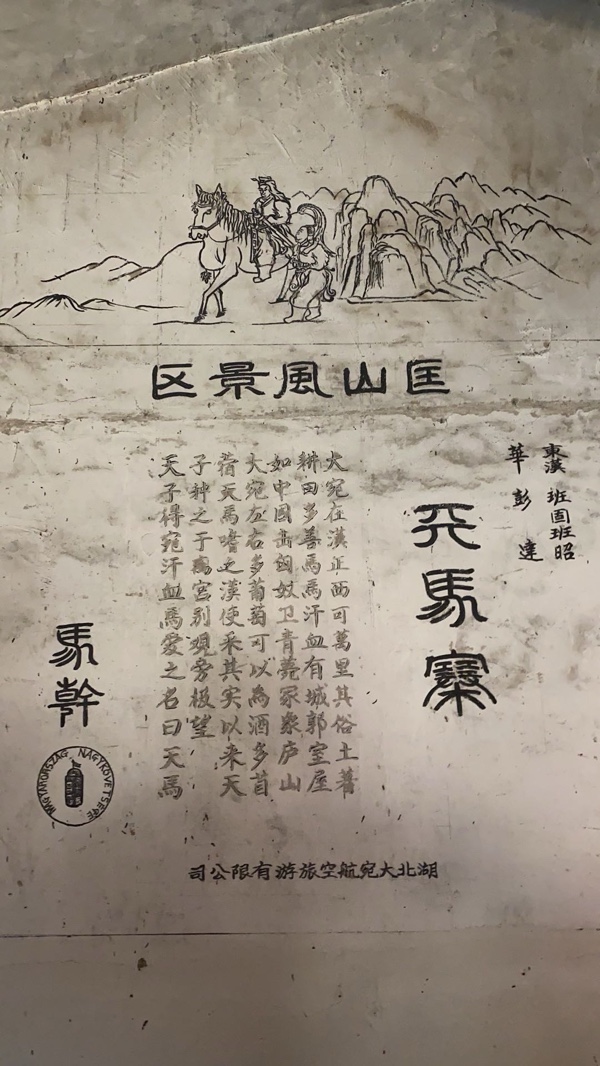 匡山風景区
東漢 班固班昭
華 彭達
天馬寨
大宛在漢正西可萬里其俗土著
耕田多善馬馬汗血有城郭室屋
如中國击匈奴卫青薨冢象庐山
大宛左右多葡萄可以為酒多苜
蓿天馬嗜之漢使采其实以来天
子种之于離宮别觀旁极望
天子得宛汗血馬愛之名曰天馬
馬幹
MAGYARORSZÁG NAGYKÖVETSÉGE
湖北大宛航空旅游有限公司